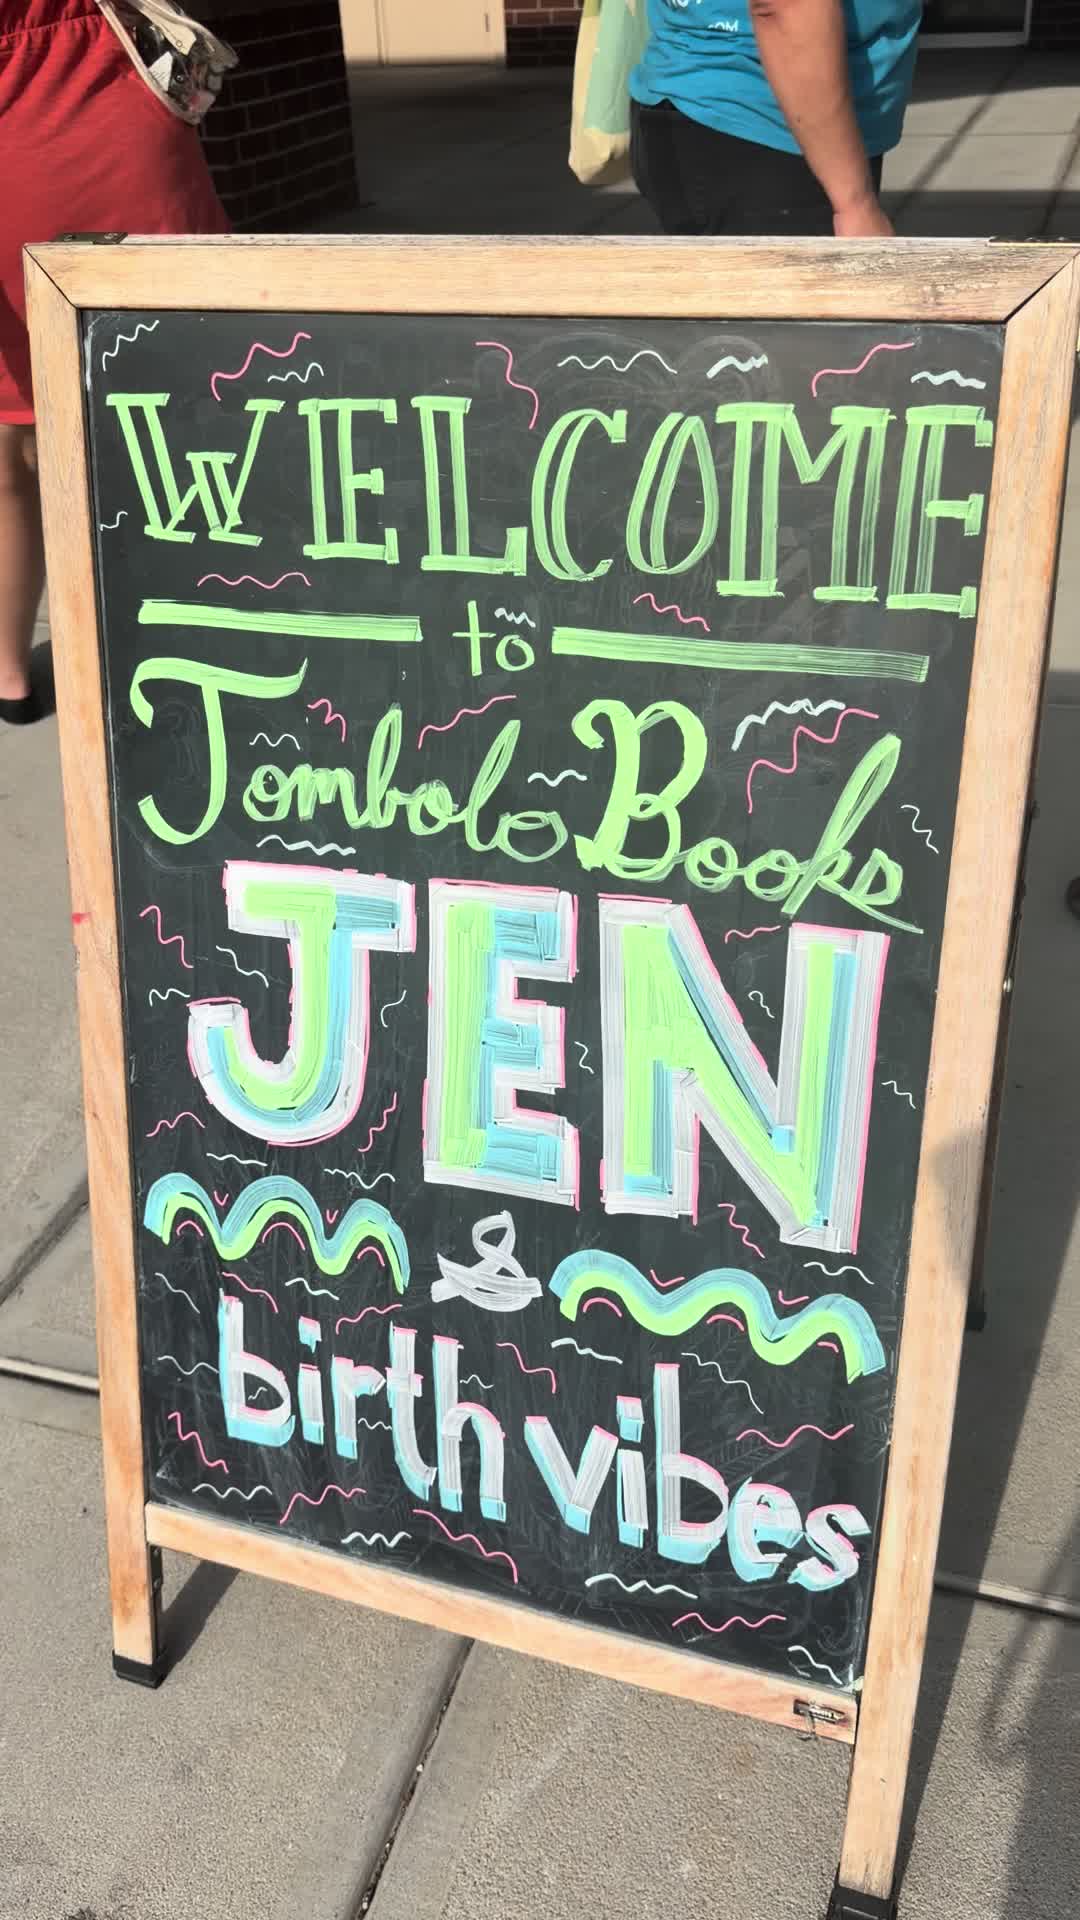 .COM
WELCOME
to
Tombolo Books
JEN
&
birth vibes